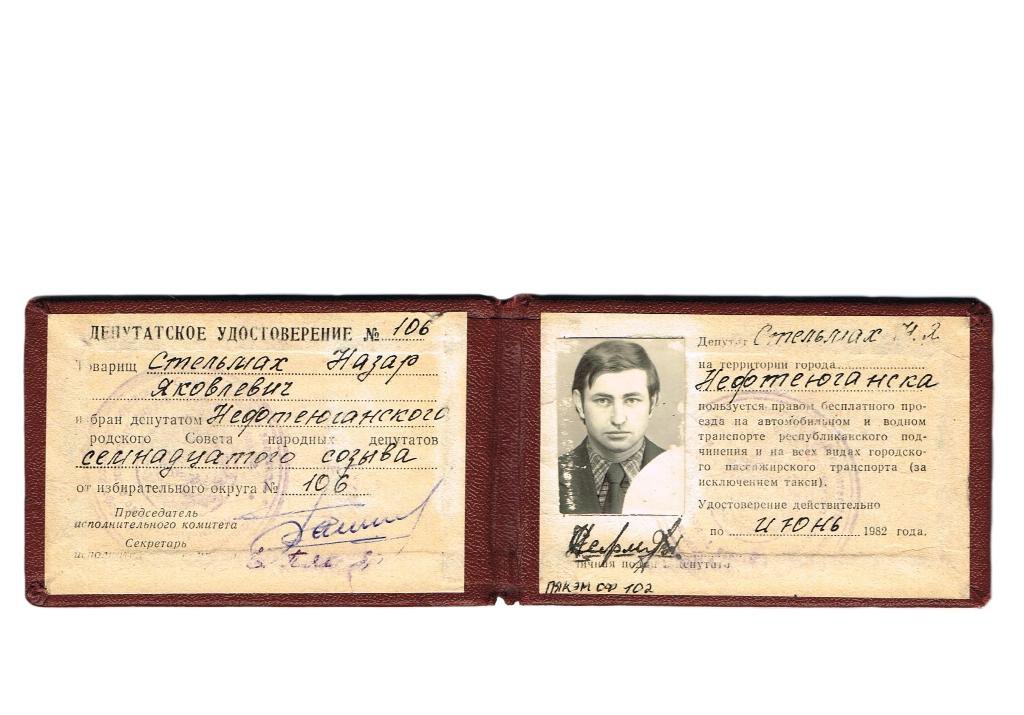 ДЕПУТАТСКОЕ УДОСТОВЕРЕНИЕ № 106
Товарищ Стельмах Назар
Яковлевич
избран депутатом Нефтеюганского
родского Совета народных депутатов
семнадцатого созыва
от избирательного округа № 106
Председатель
исполнительного комитета
Секретарь
Депутат Стельмах Н.Я
на территории города
Нефтеюганска
пользуется правом бесплатного про-
езда на автомобильном и водном
транспорте республиканского под-
чинения и на всех видах городско-
го пассажирского транспорта (за
исключением такси).
Удостоверение действительно
по июнь 1982 года.
личная подпись депутата
ПЯКЭМ СФ 102